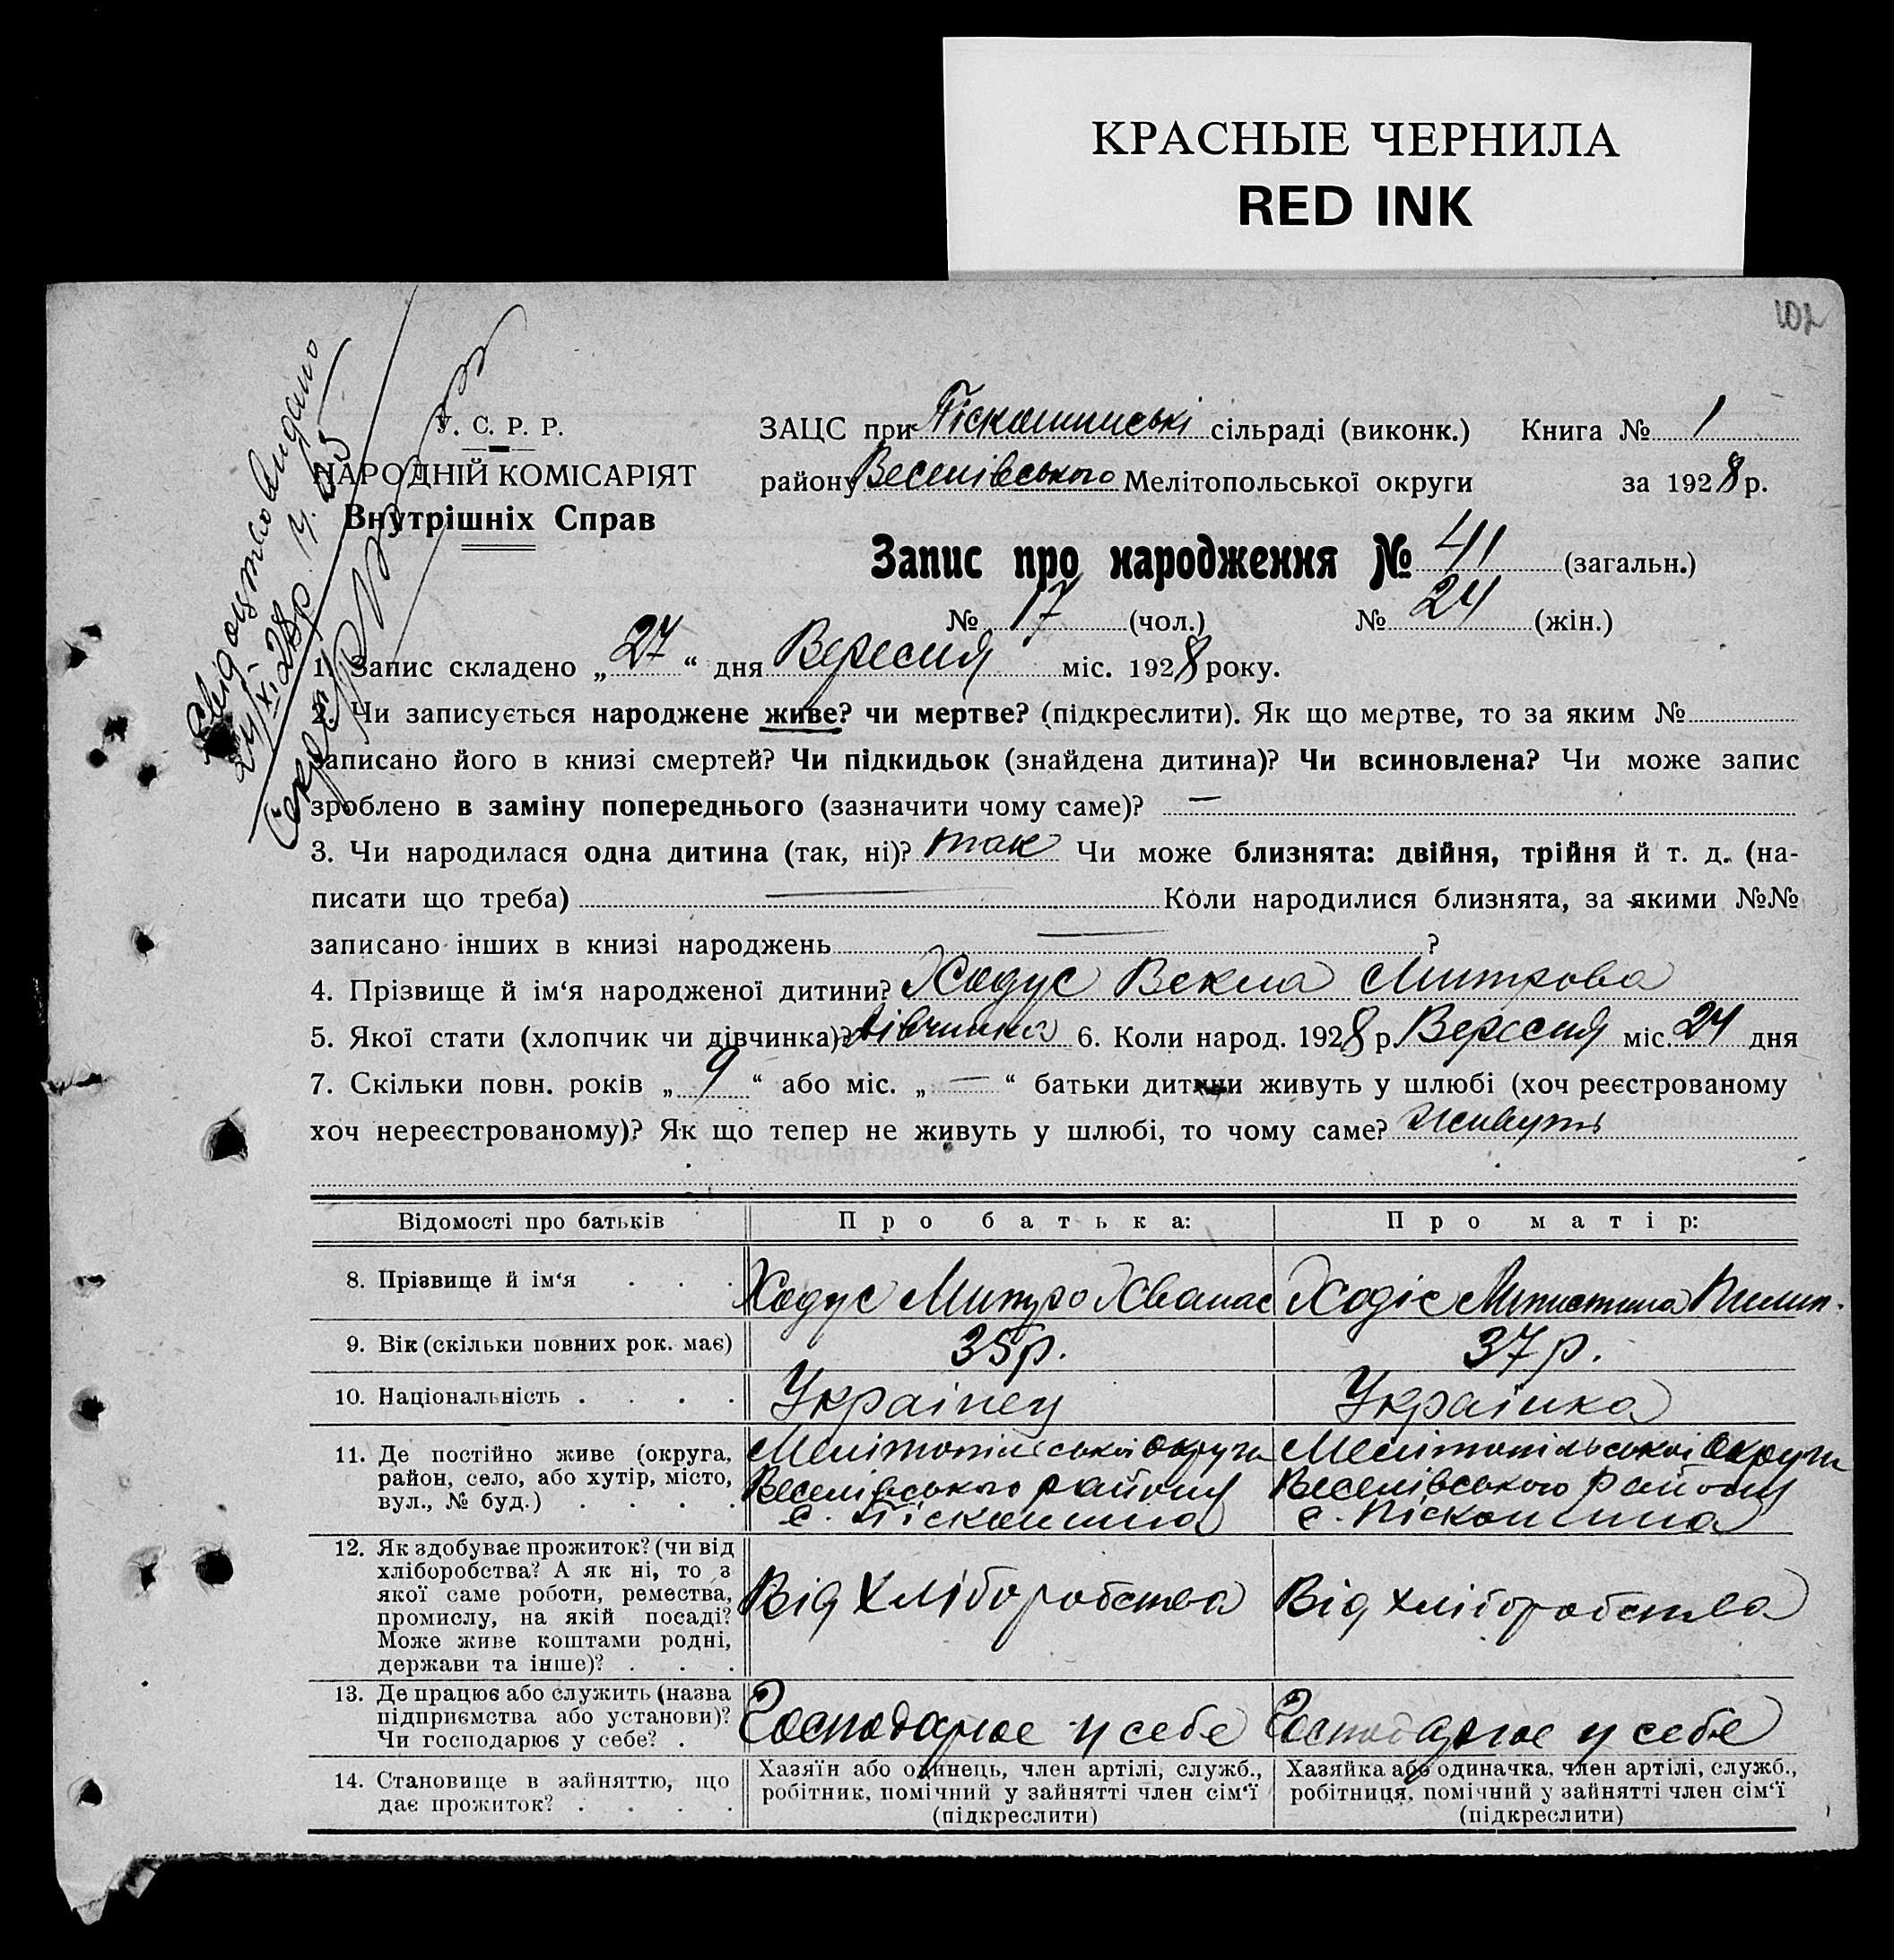 КРАСНЫЕ ЧЕРНИЛА
RED INK
102
Свідоцтво видано
24/XI 28 р.
У. С. Р. Р.
НАРОДНІЙ КОМІСАРІЯТ
Внутрішніх Справ
ЗАЦС при Піскошинські сільраді (виконк.) Книга № 1
району Веселівського Мелітопольської округи за 1928 р.
Запис про народження № 41 (загальн.)
№ 17 (чол.) № 24 (жін.)
1. Запис складено „ 27 “ дня Вересня міс. 1928 року.
2. Чи записується народжене живе? чи мертве? (підкреслити). Як що мертве, то за яким №
записано його в книзі смертей? Чи підкидьок (знайдена дитина)? Чи всиновлена? Чи може запис
зроблено в заміну попереднього (зазначити чому саме)? —
3. Чи народилася одна дитина (так, ні)? так Чи може близнята: двійня, трійня й т. д. (на-
писати що треба) — Коли народилися близнята, за якими №№
записано інших в книзі народжень — ?
4. Прізвище й ім‘я народженої дитини? Ходус Векла Митрова
5. Якої стати (хлопчик чи дівчинка)? дівчинка 6. Коли народ. 1928 р. Вересня міс. 24 дня
7. Скільки повн. років „ 9 “ або міс. „ — “ батьки дитини живуть у шлюбі (хоч реєстрованому
хоч нереєстрованому)? Як що тепер не живуть у шлюбі, то чому саме? живуть
Відомості про батьків Про батька: Про матір:
8. Прізвище й ім‘я . . . . Ходус Митро Хванас Ходіс Пилип.
9. Вік (скільки повних рок. має) 35 р. 37 р.
10. Національність . . . . Українец Українка
11. Де постійно живе (округа, район, село, або хутір, місто, вул., № буд.) . . . .
Мелітопільської округи Веселівського району с. Піскошина
Мелітопільської округи Веселівського району с. Піскошина
12. Як здобуває прожиток? (чи від хліборобства? А як ні, то з якої саме роботи, ремества, промислу, на якій посаді? Може живе коштами родні, держави та інше)? . . .
Від хліборобства Від хліборобства
13. Де працює або служить (назва підприємства або установи)? Чи господарює у себе? .
Господарює у себе Господарює у себе
14. Становище в зайняттю, що дає прожиток? . . . .
Хазяїн або одинець, член артілі, служб., робітник, помічний у зайнятті член сім‘ї (підкреслити)
Хазяйка або одиначка, член артілі, служб., робітниця, помічний у зайнятті член сім‘ї (підкреслити)